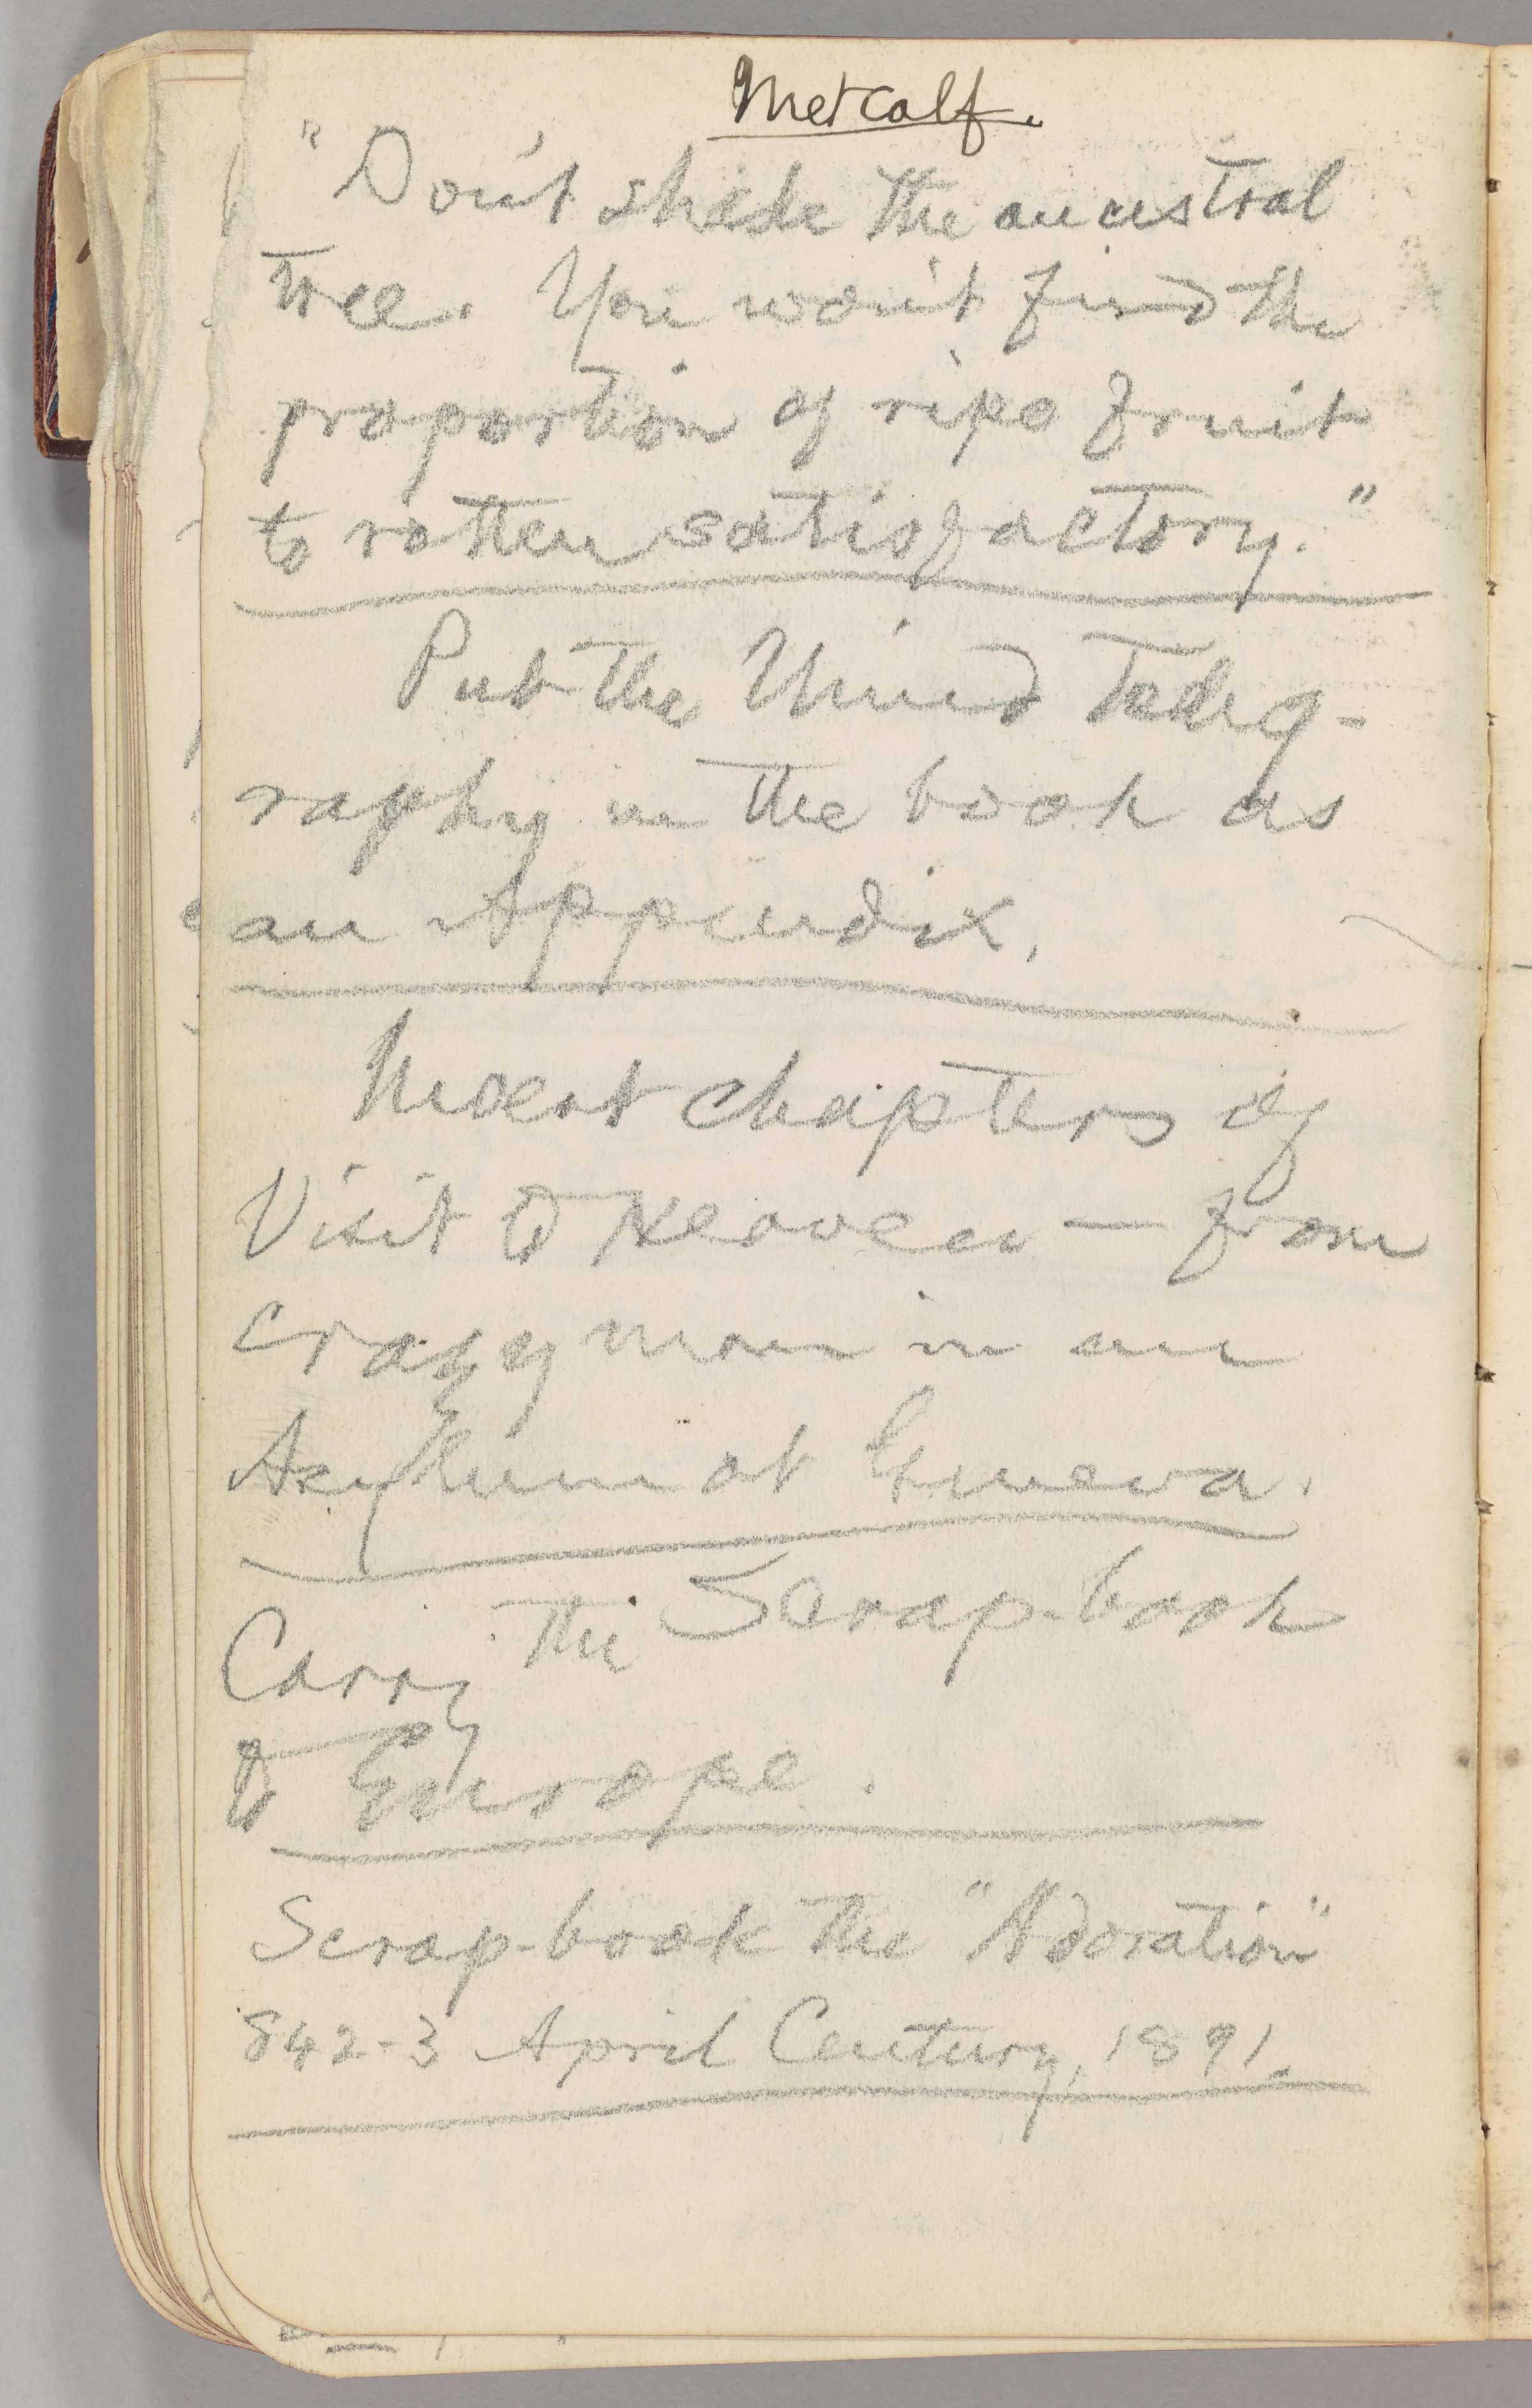 Metcalf.
"Don't shake the ancestral
tree. You won't find the
proportion of ripe fruit
to rotten satisfactory."
Put the Mind Teleg-
raphy in the book as
an Appendix.
Most chapters of
Visit to Heaven — from
crazy man in an
Asylum at Geneva.
Carry the Scrap-book
to Europe.
Scrap-book the "Adoration"
842-3 April Century, 1891.